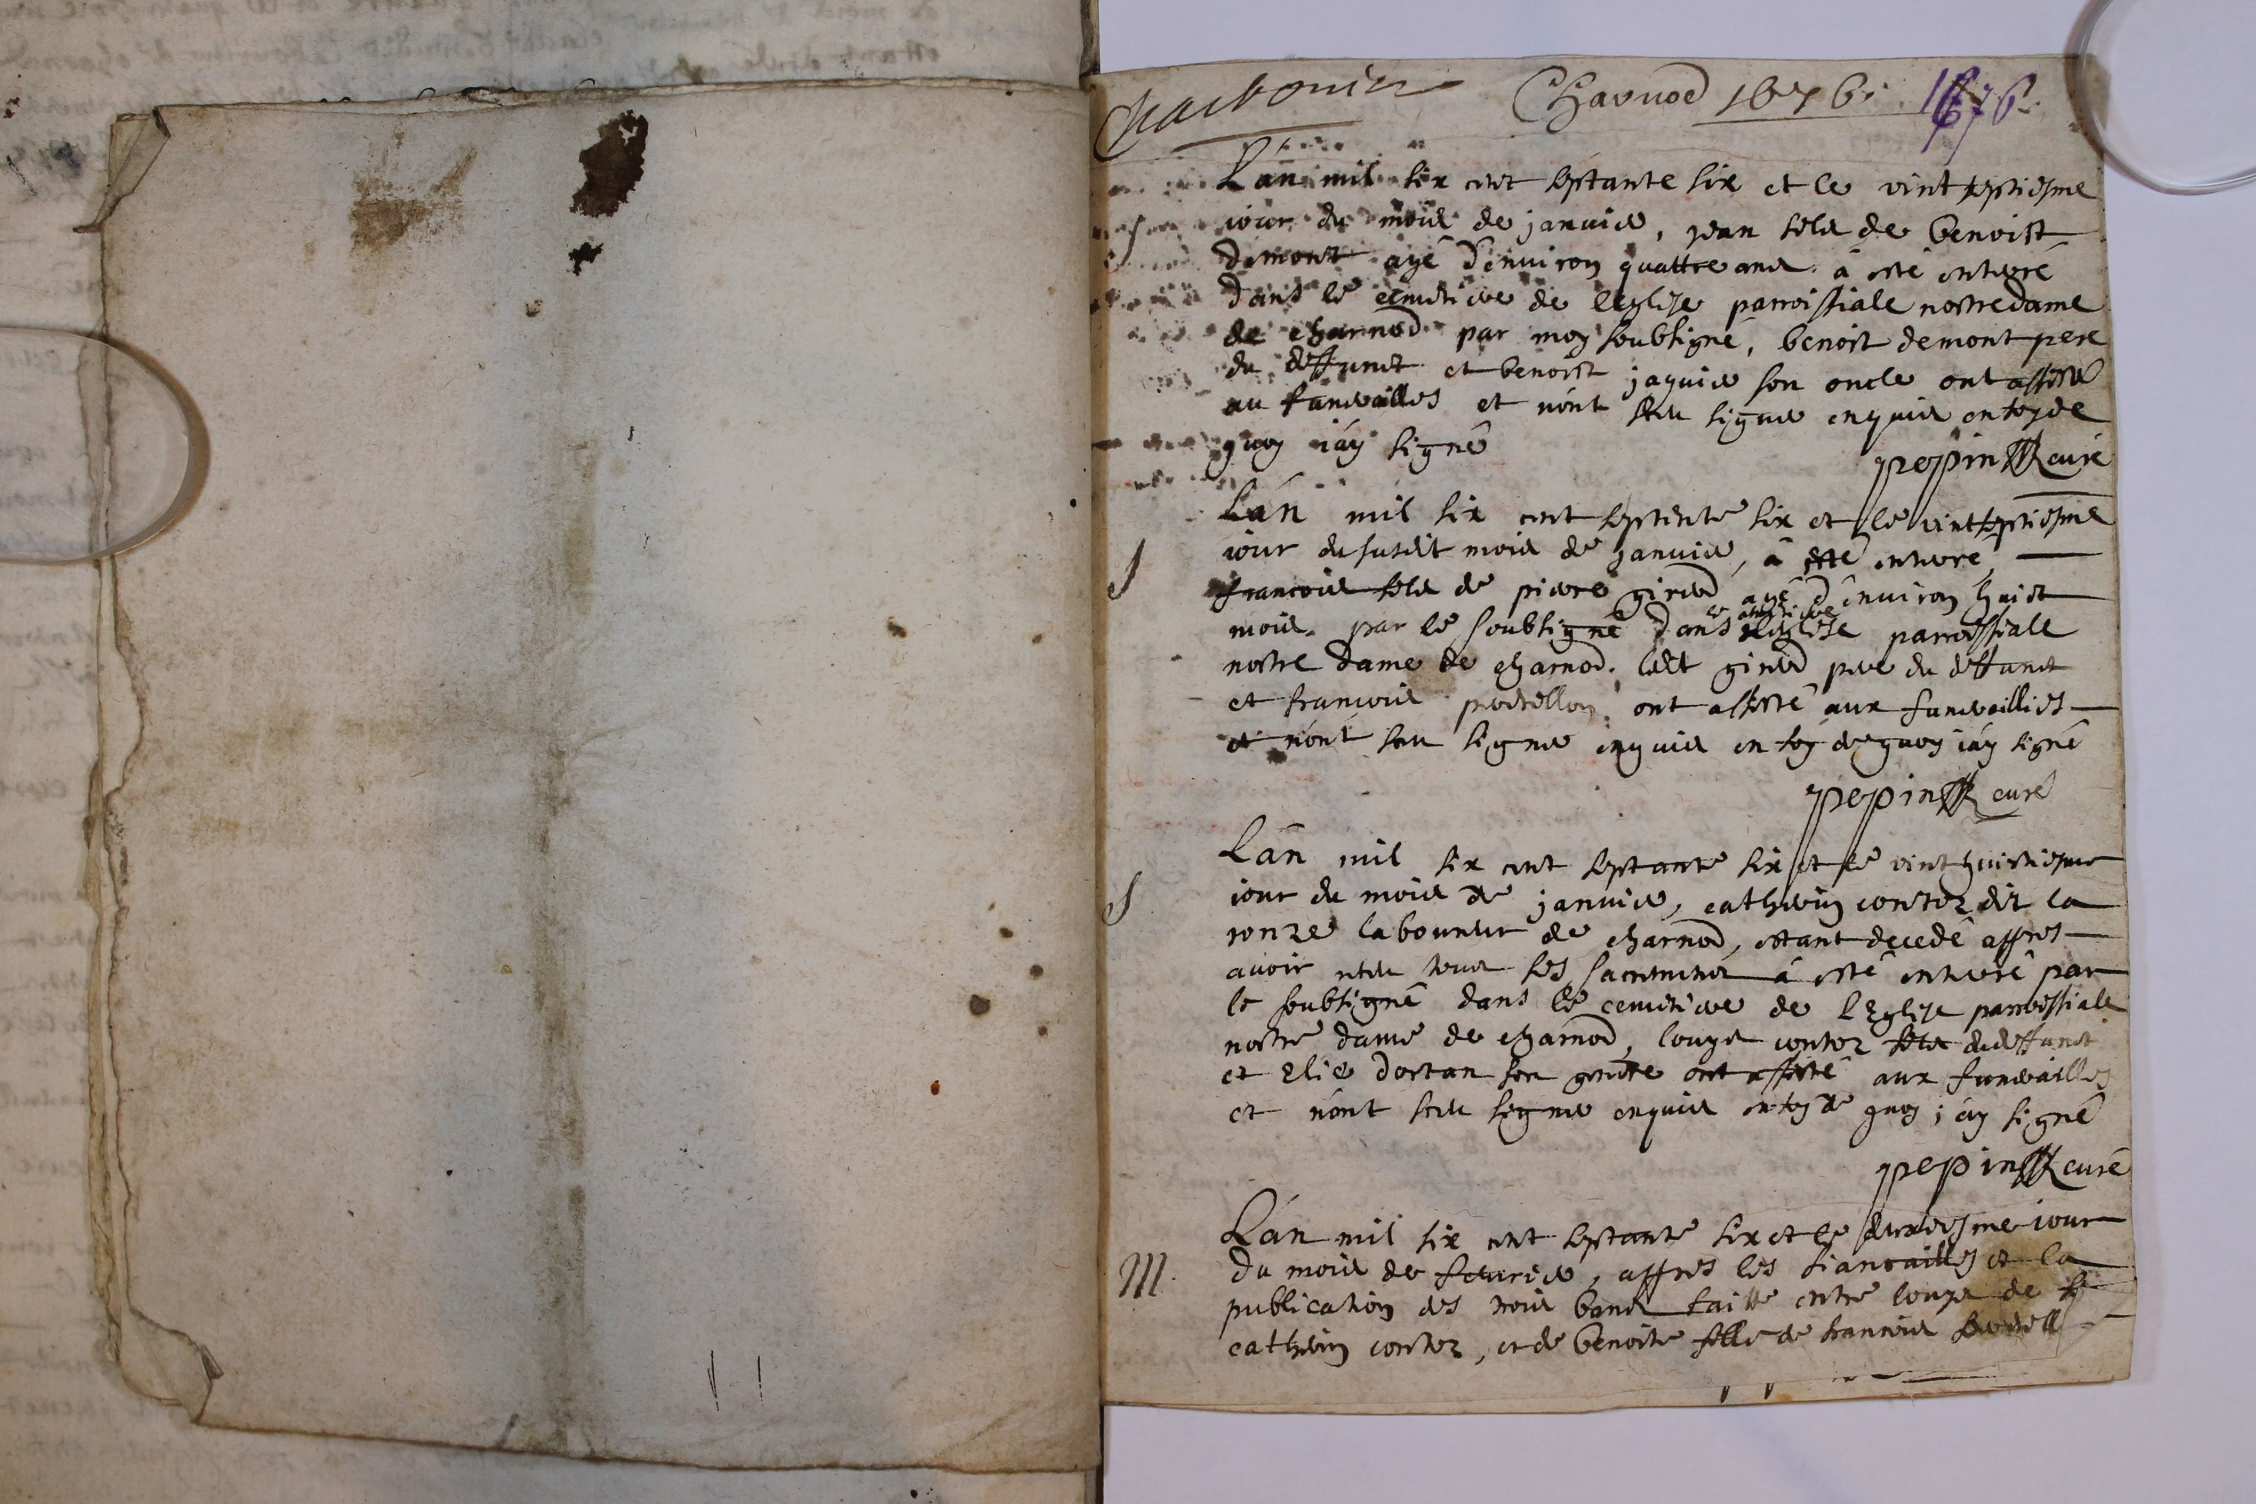 Charbonier Charnod 1676. 1676.
L'an mil six cent septante six et le vint septiesme
S iour du mois de janvier, jean fils de benoist
demont agé d'environ quattre ans à esté enterré
dans le cemetiere de leglise parroissiale nostre dame
de charnod par moy soubsigné, benoist demont pere
du deffunct et benoist jaquier son oncle ont assisté
au funerailles et n'ont sceu signer enquis en foy de
quoy i'ay signé
pepin curé
L'an mil six cent septente six et le vintseptiesme
S iour du susdit mois de janvier, à esté enterré
francois fils de pierre girod agé d'environ huict
le cemetiere
mois par le soubsigné dans leglise parroissiale
nostre dame de charnod, ledt girod pere du deffunct
et francois ont assisté aux funerailles
et n'ont sceu signer enquis en foy de quoy i'ay signé
pepin curé
L'an mil six cent septante six et le vint huictiesme
S iour du mois de janvier, catherin dit la
ronze laboureur de charnod, estant decedé appres
avoir receu tous ses sacrements à esté enterré par
le soubsigné dans le cemetiere de l'Eglise parroissiale
nostre dame de charnod, louys fils du deffunct
et Elie dortan son gendre ont assisté aux funerailles
et n'ont sceu signer enquis en foy de quoy j'ay signé
pepin curé
L'an mil six cent septante six et le deuxiesme iour
M. du mois de fevrier, appres les fiancailles et la
publication des trois bans faitte entre louys de
catherin, et de benoite fille de francois